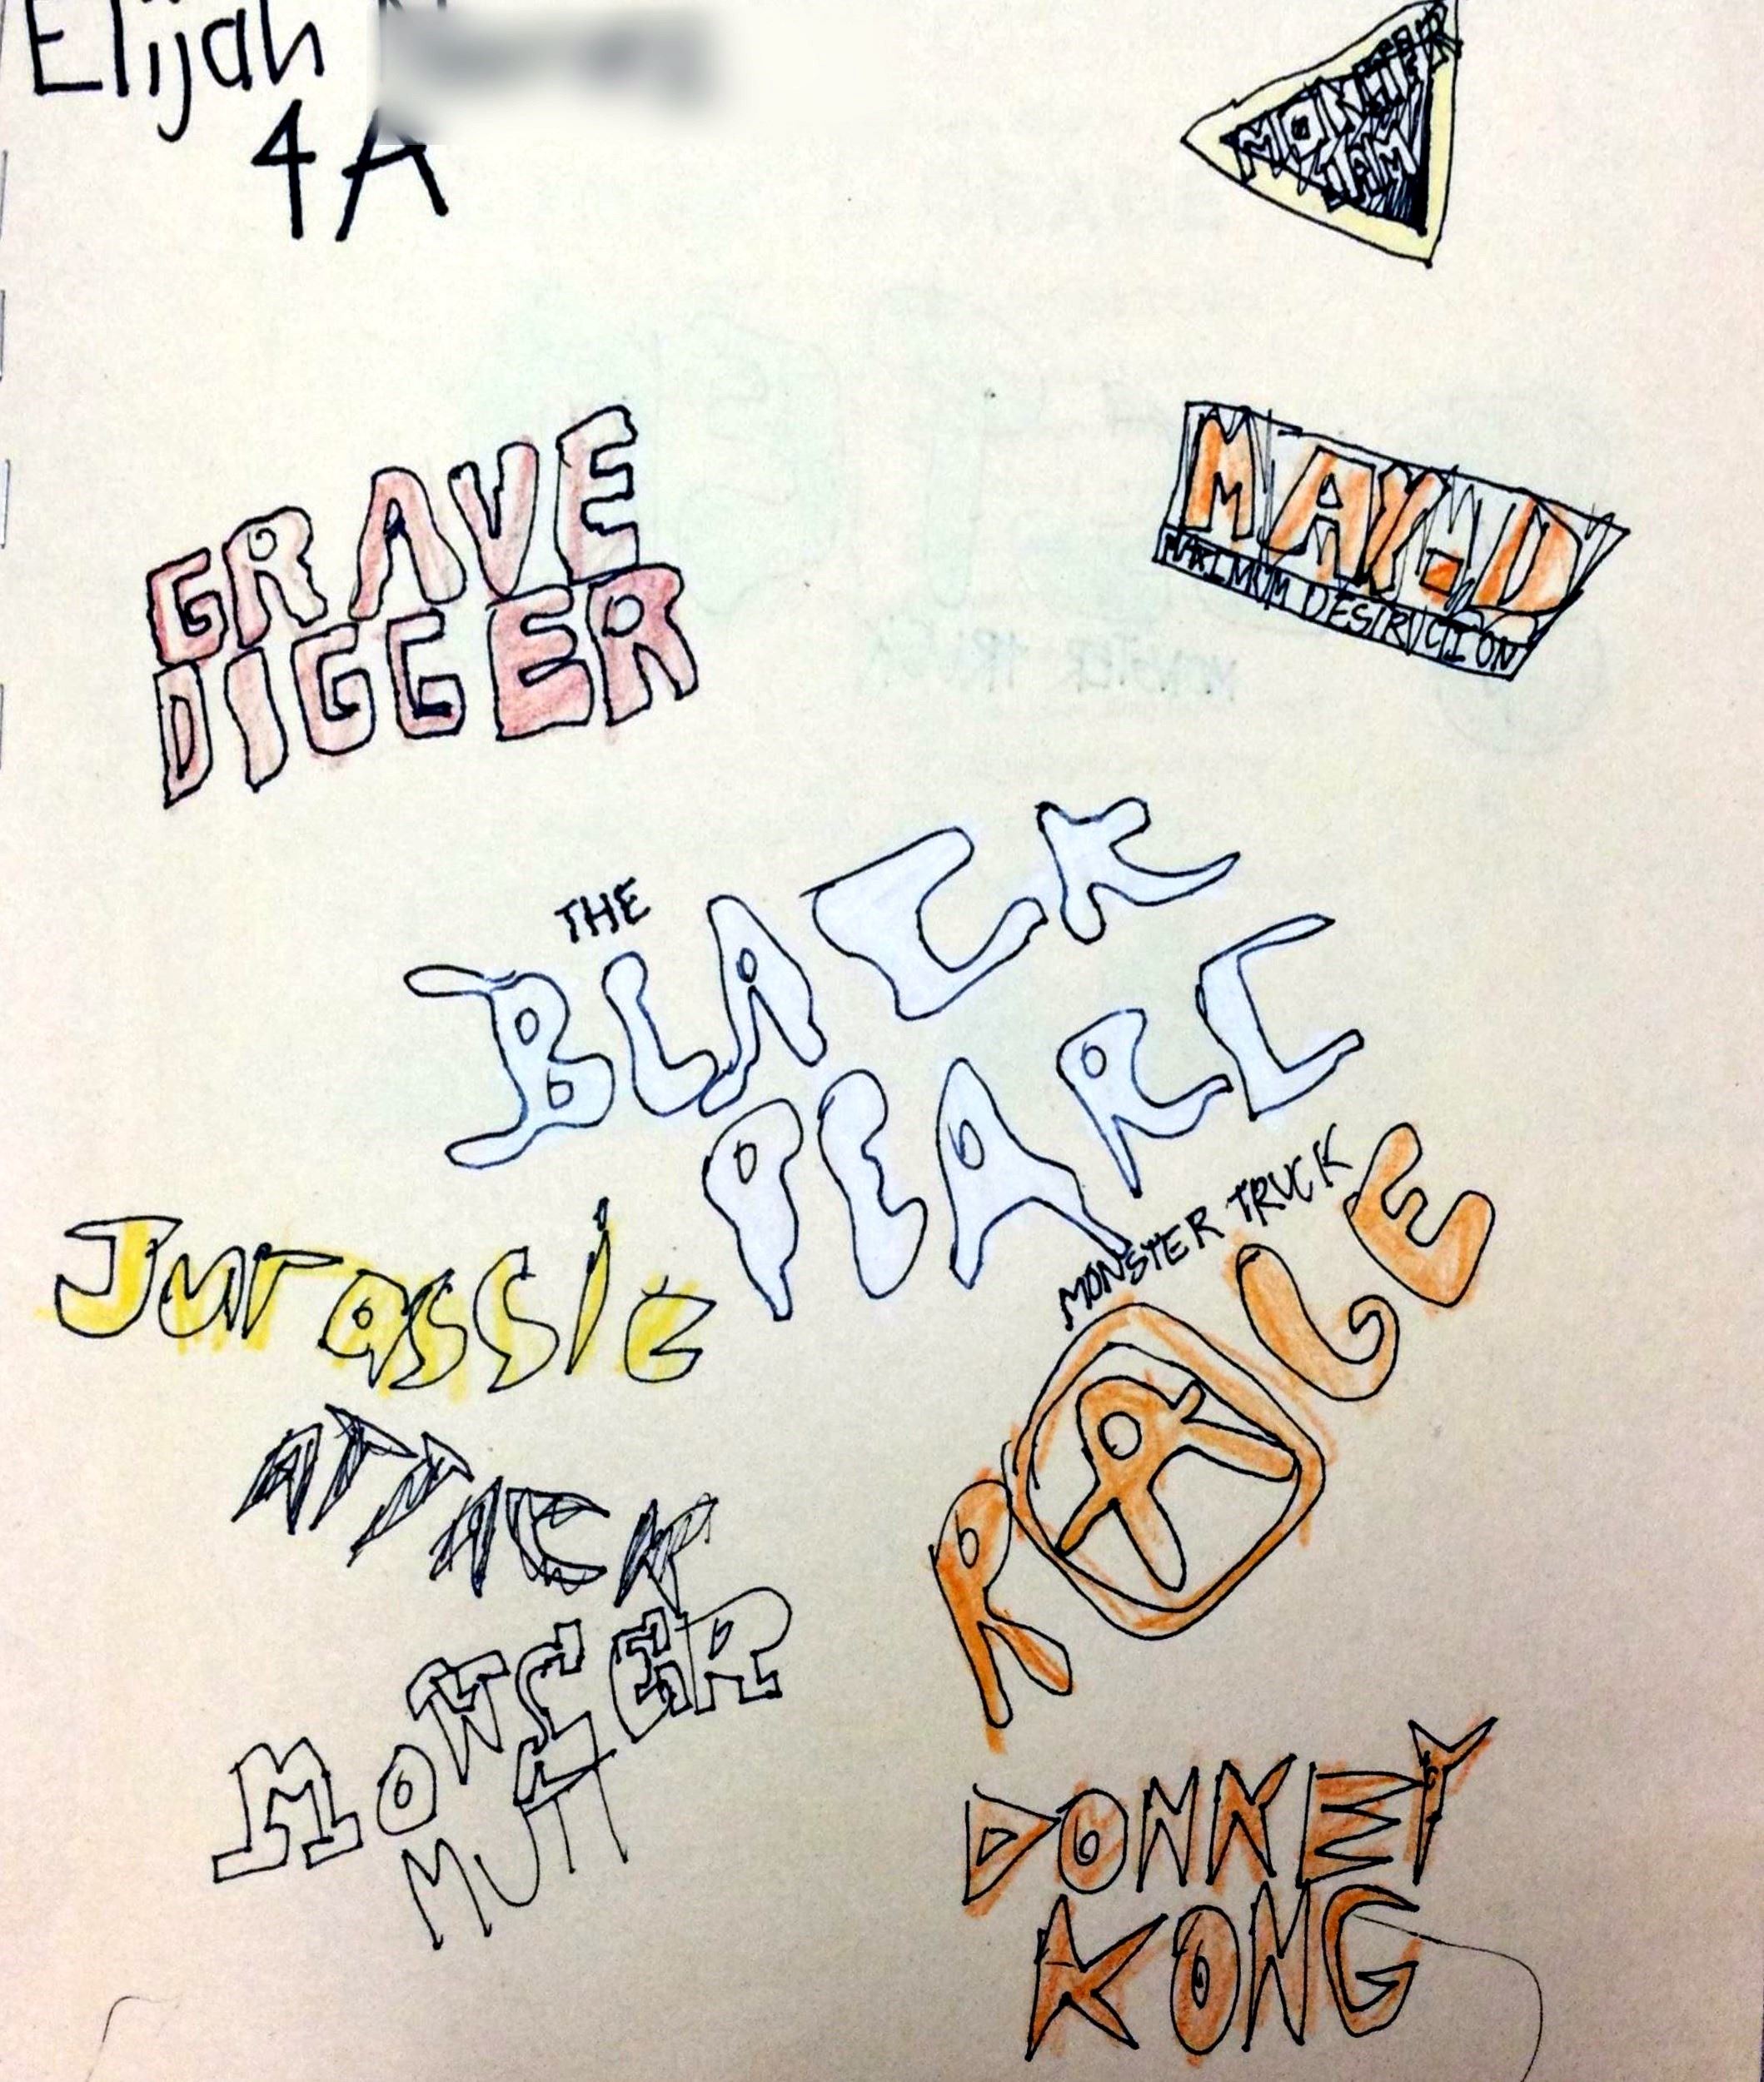 Elijah
4A
MONSTER
JAM
GRAVE
DIGGER
MAX-D
MAXIMUM DESTRUCTION
THE
BLACK
PEARL
Jurassic
ATTACK
MONSTER TRUCK
RAGE
MONSTER
MUTT
DONKEY
KONG